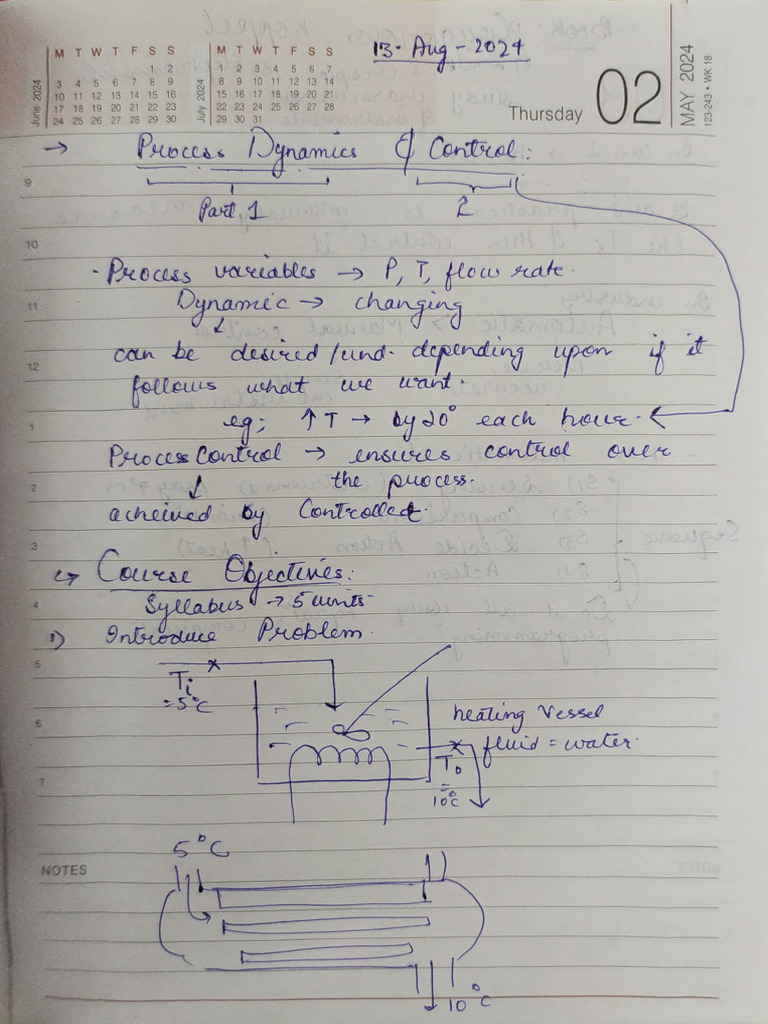 June 2024
M T W T F S S
1 2
3 4 5 6 7 8 9
10 11 12 13 14 15 16
17 18 19 20 21 22 23
24 25 26 27 28 29 30
July 2024
M T W T F S S
1 2 3 4 5 6 7
8 9 10 11 12 13 14
15 16 17 18 19 20 21
22 23 24 25 26 27 28
29 30 31
13 - Aug - 2024
Thursday 02
MAY 2024
123-243 • WK 18
→ Process Dynamics & Control:
9
Part 1 2
10
· Process variables → P, T, flow rate.
11
Dynamic → changing
↓
12
can be desired /und. depending upon if it
follows what we want.
1
eg; ↑ T → by 20° each hour.
Process Control → ensures control over
2
↓ the process.
acheived by Controlled
3
↪ Course Objectives:
4
Syllabus → 5 units
1) Introduce Problem.
5
Ti
= 5°C
6
heating Vessel
fluid = water.
To
7
=
10°C
5°C
NOTES
10°C